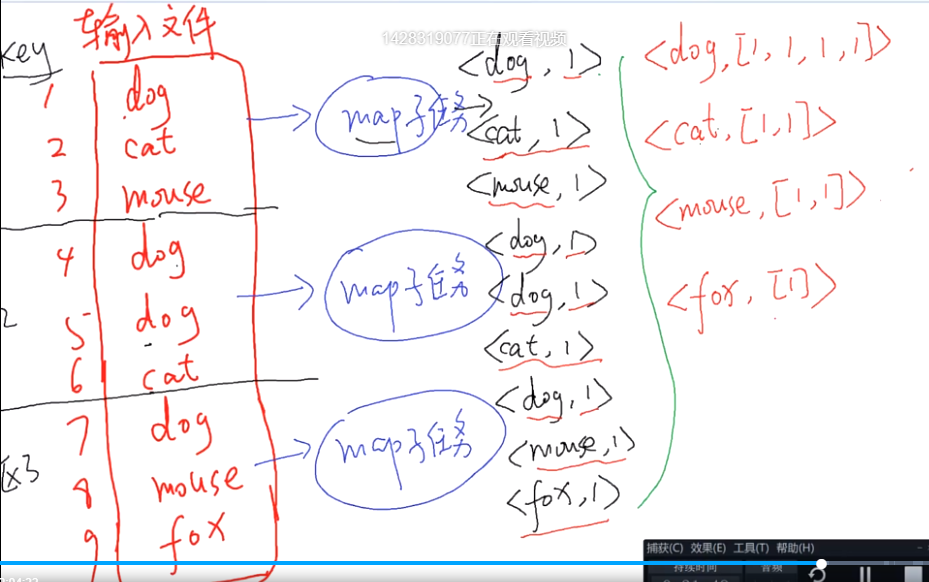 输入文件
1428319077正在观看视频
key
1 dog
2 cat
3 mouse
4 dog
5 dog
6 cat
7 dog
8 mouse
9 fox
2
区3
map子任务
map子任务
map子任务
<dog, 1>
<cat, 1>
<mouse, 1>
<dog, 1>
<dog, 1>
<cat, 1>
<dog, 1>
<mouse, 1>
<fox, 1>
<dog, [1, 1, 1, 1]>
<cat, [1, 1]>
<mouse, [1, 1]>
<fox, [1]>
捕获(C) 效果(E) 工具(T) 帮助(H)
持续时间 音频